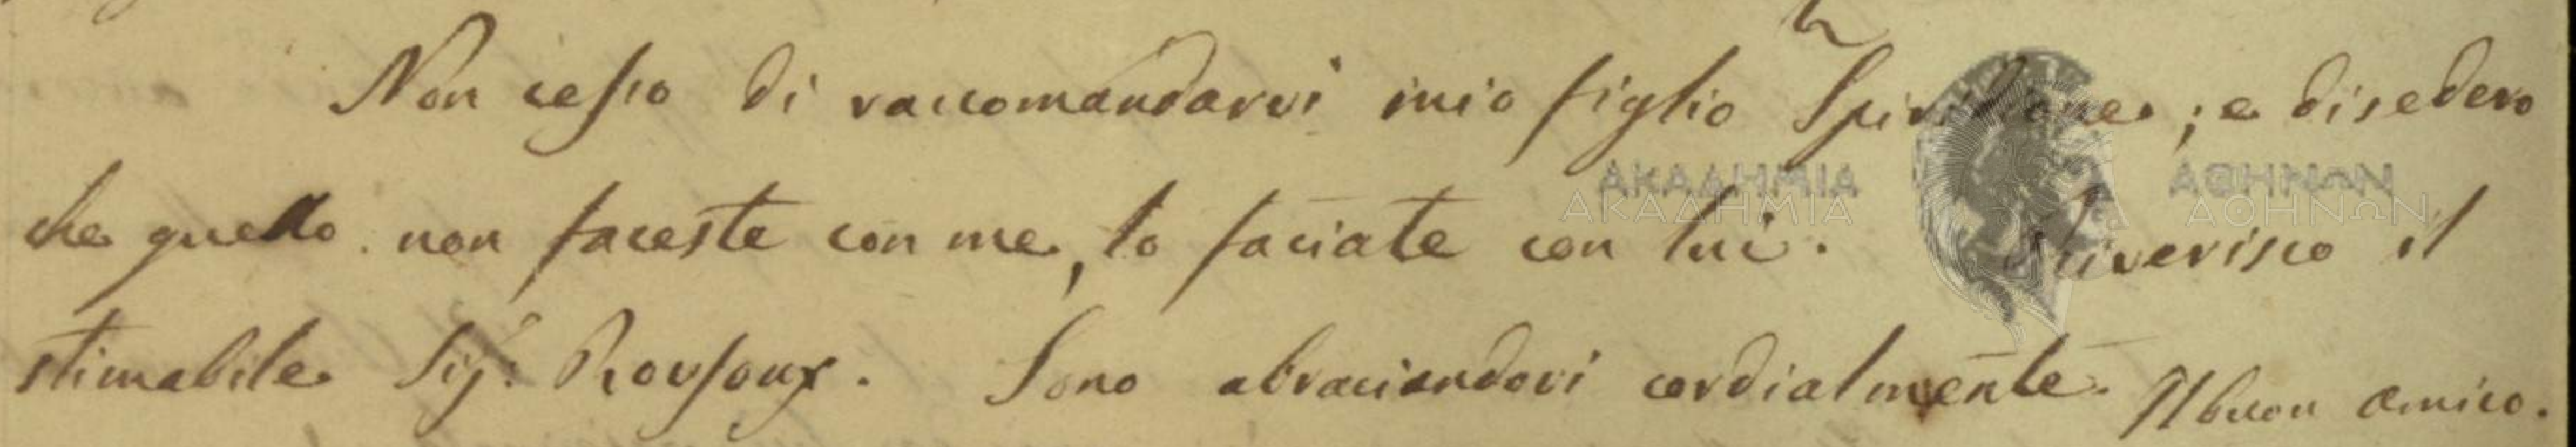 Non cesso di raccomandarvi mio figlio Spiridione; e disedero
che quello non faceste con me, lo faciate con lui. Riverisco il
stimabile Sigr. Rousoux. Sono abraciandovi cordialmente. Il buon amico.
ΑΚΑΔΗΜΙΑ ΑΘΗΝΩΝ
ΑΚΑΔΗΜΙΑ ΑΘΗΝΩΝ